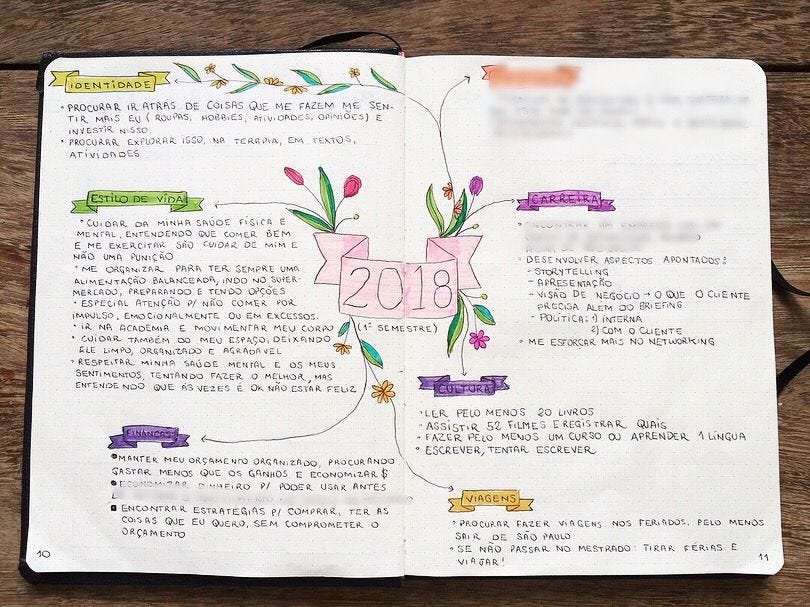 IDENTIDADE
• PROCURAR IR ATRÁS DE COISAS QUE ME FAZEM ME SEN-
TIR MAIS EU (ROUPAS, HOBBIES, ATIVIDADES, OPINIÕES) E
INVESTIR NISSO
• PROCURAR EXPLORAR ISSO, NA TERAPIA, EM TEXTOS,
ATIVIDADES
ESTILO DE VIDA
• CUIDAR DA MINHA SAÚDE FÍSICA E
MENTAL, ENTENDENDO QUE COMER BEM
E ME EXERCITAR SÃO CUIDAR DE MIM E
NÃO UMA PUNIÇÃO
• ME ORGANIZAR PARA TER SEMPRE UMA
ALIMENTAÇÃO BALANCEADA, INDO NO SUPER-
MERCADO, PREPARANDO E TENDO OPÇÕES
• ESPECIAL ATENÇÃO P/ NÃO COMER POR
IMPULSO, EMOCIONALMENTE OU EM EXCESSOS.
• IR NA ACADEMIA E MOVIMENTAR MEU CORPO
• CUIDAR TAMBÉM DO MEU ESPAÇO, DEIXANDO
ELE LIMPO, ORGANIZADO E AGRADÁVEL
• RESPEITAR MINHA SAÚDE MENTAL E OS MEUS
SENTIMENTOS, TENTANDO FAZER O MELHOR, MAS
ENTENDENDO QUE ÀS VEZES É OK NÃO ESTAR FELIZ
FINANÇAS
• MANTER MEU ORÇAMENTO ORGANIZADO, PROCURANDO
GASTAR MENOS QUE OS GANHOS E ECONOMIZAR $
• ECONOMIZAR DINHEIRO P/ PODER USAR ANTES
• ENCONTRAR ESTRATÉGIAS P/ COMPRAR, TER AS
COISAS QUE EU QUERO, SEM COMPROMETER O
ORÇAMENTO
10
2018
(1º SEMESTRE)
CARREIRA
• ENCONTRAR UM
• DESENVOLVER ASPECTOS APONTADOS:
- STORYTELLING
- APRESENTAÇÃO
- VISÃO DE NEGÓCIO → O QUE O CLIENTE
PRECISA ALÉM DO BRIEFING
- POLÍTICA: 1) INTERNA
2) COM O CLIENTE
• ME ESFORÇAR MAIS NO NETWORKING
CULTURA
• LER PELO MENOS 20 LIVROS
• ASSISTIR 52 FILMES E REGISTRAR QUAIS
• FAZER PELO MENOS UM CURSO OU APRENDER 1 LÍNGUA
• ESCREVER, TENTAR ESCREVER
VIAGENS
• PROCURAR FAZER VIAGENS NOS FERIADOS, PELO MENOS
SAIR DE SÃO PAULO
• SE NÃO PASSAR NO MESTRADO: TIRAR FÉRIAS E
VIAJAR!
11